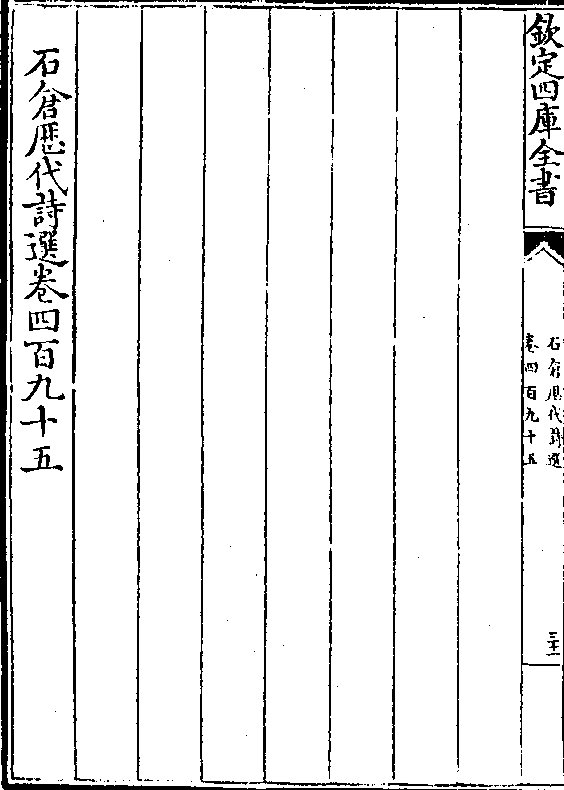 欽定四庫全書
石倉歷代詩選
卷四百九十五
三十一
石倉歷代詩選卷四百九十五